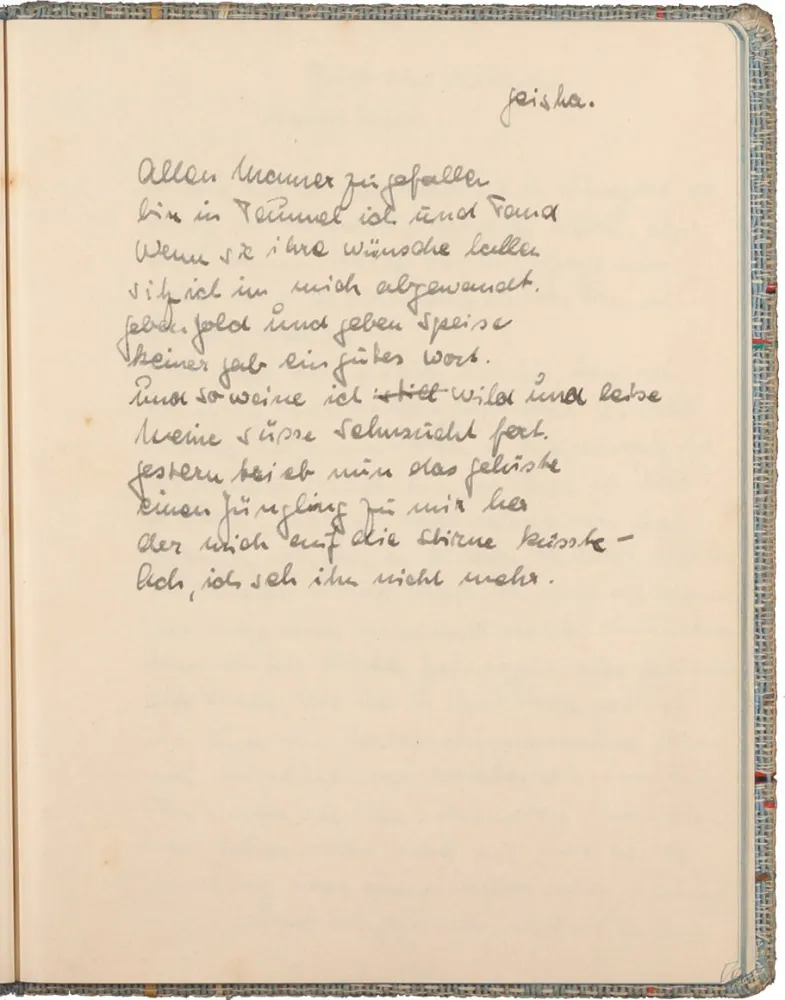 geisha.
Allen Männer zu gefallen
bin in Taumel ich und Tand
Wenn sie ihre wünsche lallen
sitz ich in mich abgewandt.
geben gold und geben speise
keiner gab ein gutes wort.
und so weine ich still wild und leise
Meine süsse sehnsucht fort.
gestern trieb nun das gelüste
einen jüngling zu mir her
der mich auf die stirne küsste –
Ach, ich seh ihn nicht mehr.